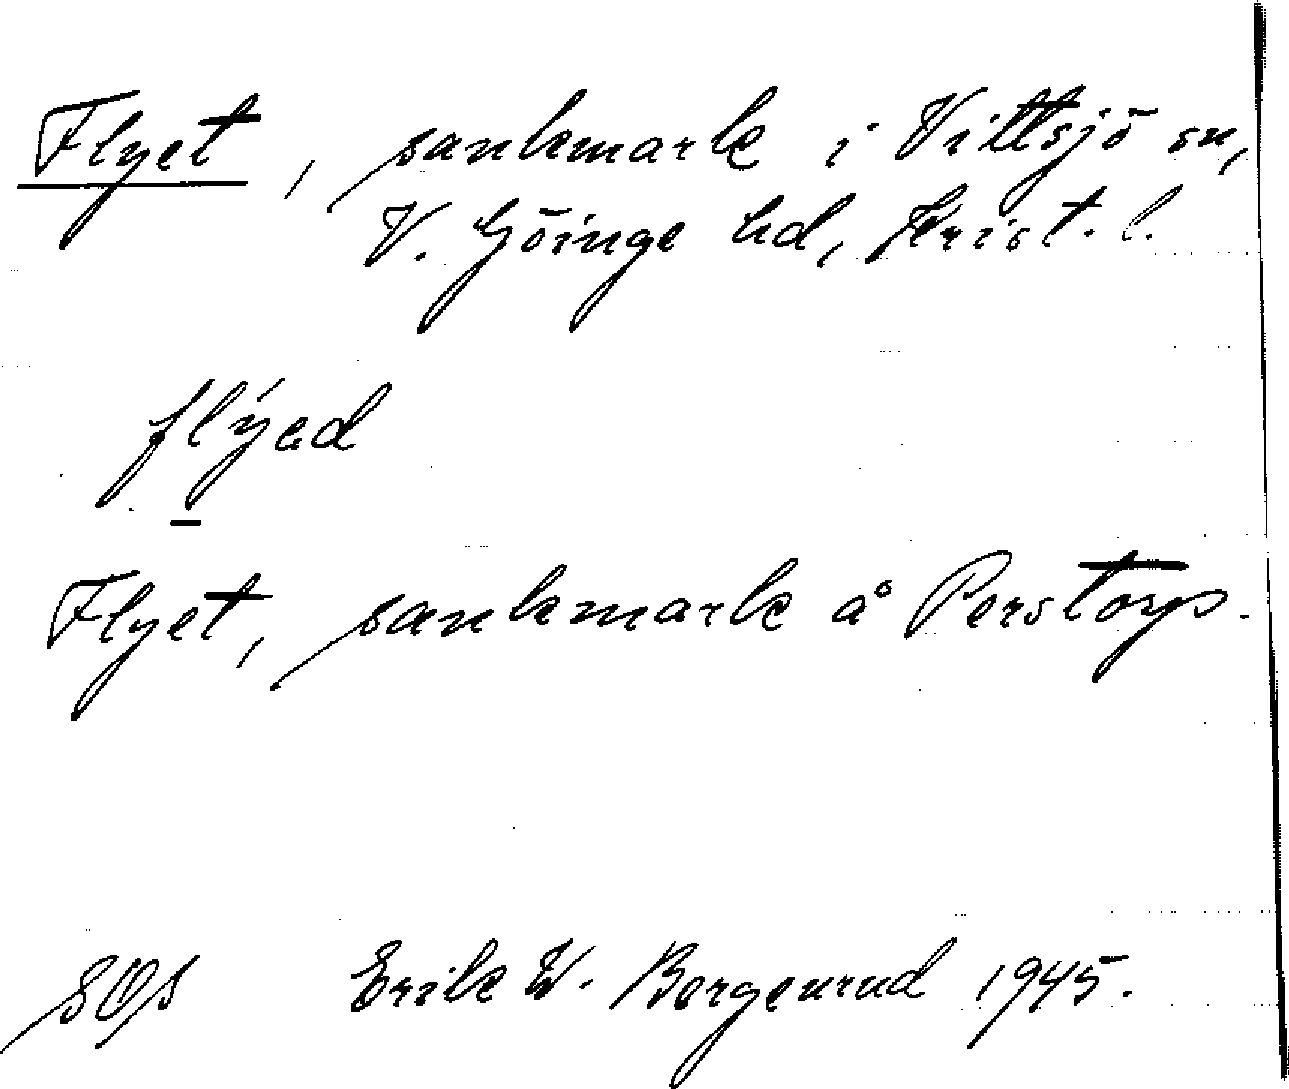 Flyet, sankmark i Vittsjö sn,
V. Göinge hd, Krist. l.
flýed
Flyet, sankmark å Perstorp.
Erik W. Borgenrud 1945.